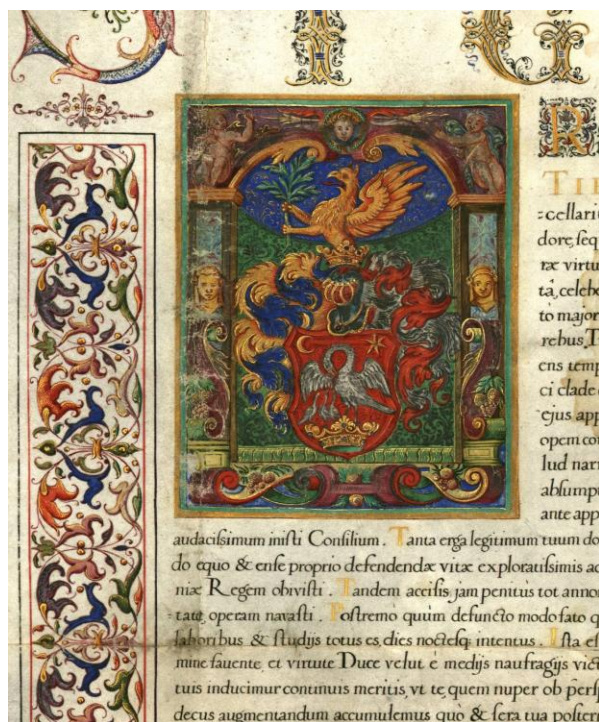 I G
R
TI
cellari
dore, seq
ræ virtu
tâ, celeb
to major
rebus, T
ens temp
ci clade
ejus app
opem co
lud nar
absump
ante app
audacissimum inisti Consilium. Tanta erga legitimum tuum do
do equo & ense proprio defendendæ vitæ exploratissimis ac
niæ Regem obivisti. Tandem accisis jam penitus tot annor
tate operam navasti. Postremo quùm defuncto modo fato q
laboribus & studijs totus es, dies noctesq; intentus. Ista es
mine fauente, et virtute Duce velut è medijs naufragijs vict
tuis inducimur continuis meritis, vt te, quem nuper ob pers
decus augmentandum accumulemus quò & sera tua poster